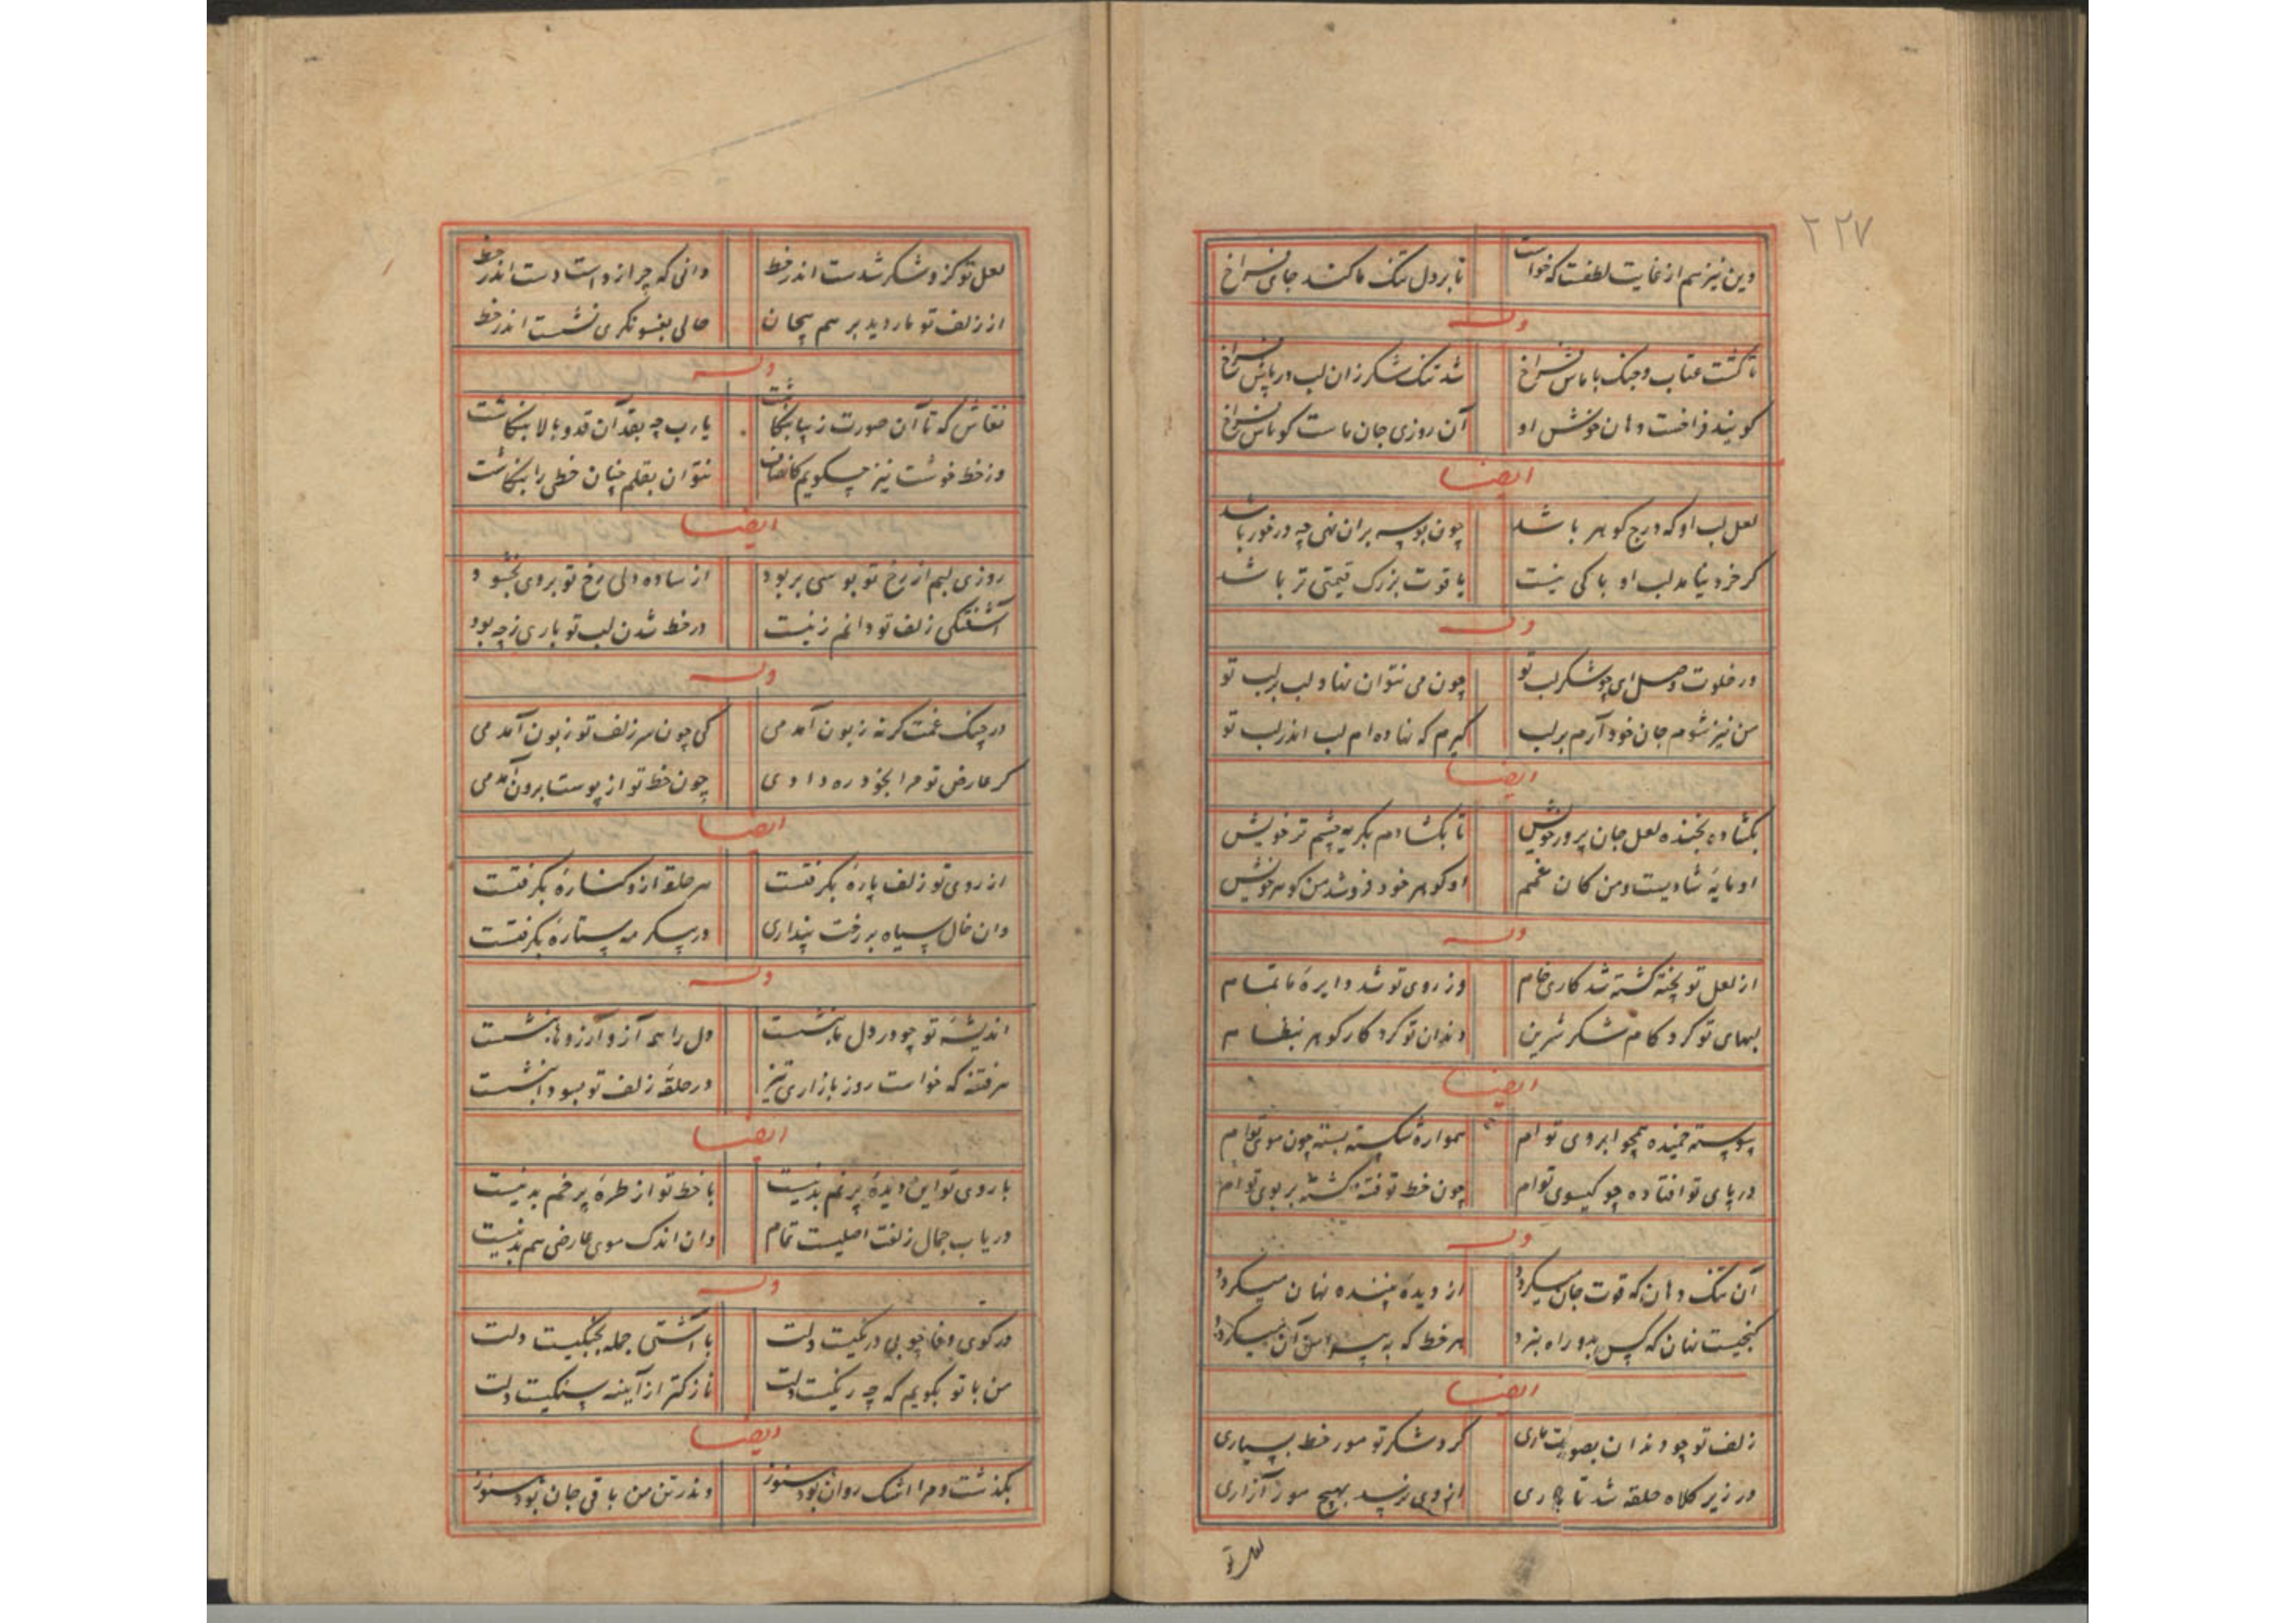 ۲۲۷
وین نیز هم از غایت لطفست که خواست تا بر دل تنک ما کند جای فراخ
وله
تا کشت عتاب و جنک با ماش فراخ شد تنک شکر زان لب در پاش فراخ
کویند فراخست دهان خوش او آن روزی جان ماست کو باش فراخ
ایضا
لعل لب او که درج کوهر باشد چون بوسه بران نهی چه در خور باشد
کر خرد نیامد لب او باکی نیست یاقوت بزرک قیمتی تر باشد
وله
در خلوت وصل ای چو شکر لب تو چون می نتوان نهاد لب بر لب تو
من نیز شوم جان خود آرم بر لب کیرم که نهاده ام لب اندر لب تو
ایضا
بکشاده بخنده لعل جان پرور خویش تا بکشادم بکریه چشم تر خویش
او مایهٔ شادیست و من کان غمم او کوهر خود فروشد من کوهر خویش
وله
از لعل تو پخته کشته شد کاری خام وز روی تو شد دایرهٔ ما تمام
لبهای تو کرد کام شکر شیرین دندان تو کرد کار کوهر بنظام
ایضا
پیوسته خمیده همچو ابروی تو ام همواره شکسته بسته چون موی تو ام
در پای تو افتاده چو کیسوی تو ام چون خط تو فتنه کشته بر بوی تو ام
وله
آن تنک دهان که قوت جان میکردد از دیدهٔ بیننده نهان میکردد
کنجیست نهان که کس بدو راه نبرد هر خط که به پیرامن آن میکردد
ایضا
زلف تو چو دندان بصورت ماری کرد شکر تو مور خط بسیاری
در زیر کلاه حلقه شد تا باری از وی نرسد بهیچ مور آزاری
لعل تو
لعل تو کزو شکر شدست اندر خط دانی که چرا زد است دست اندر خط
از زلف تو مار دید بر هم پیچان حالی بفسونکری نشست اندر خط
وله
نقاش که تا آن صورت زیبا بنکاشت یارب چه بقد آن قد و بالا بنکاشت
وز خط خوشت نیز چکویم کانصاف نتوان بقلم چنان خطی را بنکاشت
ایضا
روزی لبم از رخ تو بوسی بربود از ساده دلی رخ تو بروی بخشود
آشفتکی زلف تو دانم زنیست در خط شدن لب تو باری ز چه بود
وله
در چنک غمت کر نه زبون آمدمی کی چون سر زلف تو زبون آمدمی
کر عارض تو مرا بخود ره دادی چون خط تو از پوست برون آمدمی
ایضا
از روی تو زلف پارهٔ بکرفتست هر حلقه ازو کنارهٔ بکرفتست
وان خال سیاه بر رخت پنداری در پیکر مه ستارهٔ بکرفتست
وله
اندیشهٔ تو چو در دل ما بنشست دل را همه آز و آرزوها بنشست
هر فتنه که خواست روز بازاری تیز در حلقهٔ زلف تو بسودا بنشست
ایضا
با روی تو این دیدهٔ پر نم بد نیست با خط تو از طرهٔ پر خم بد نیست
دریاب جمال زلفت اصلیست تمام وان اندک موی عارضی هم بد نیست
وله
در کوی وفا چو بی درنکیست دلت با آشتی جمله بجنکیست دلت
من با تو بکویم که چه رنکست دلت نازکتر از آینه سنکیست دلت
ایضا
بکذشت و مرا اشک روان بود هنوز وندر تن من باقی جان بود هنوز